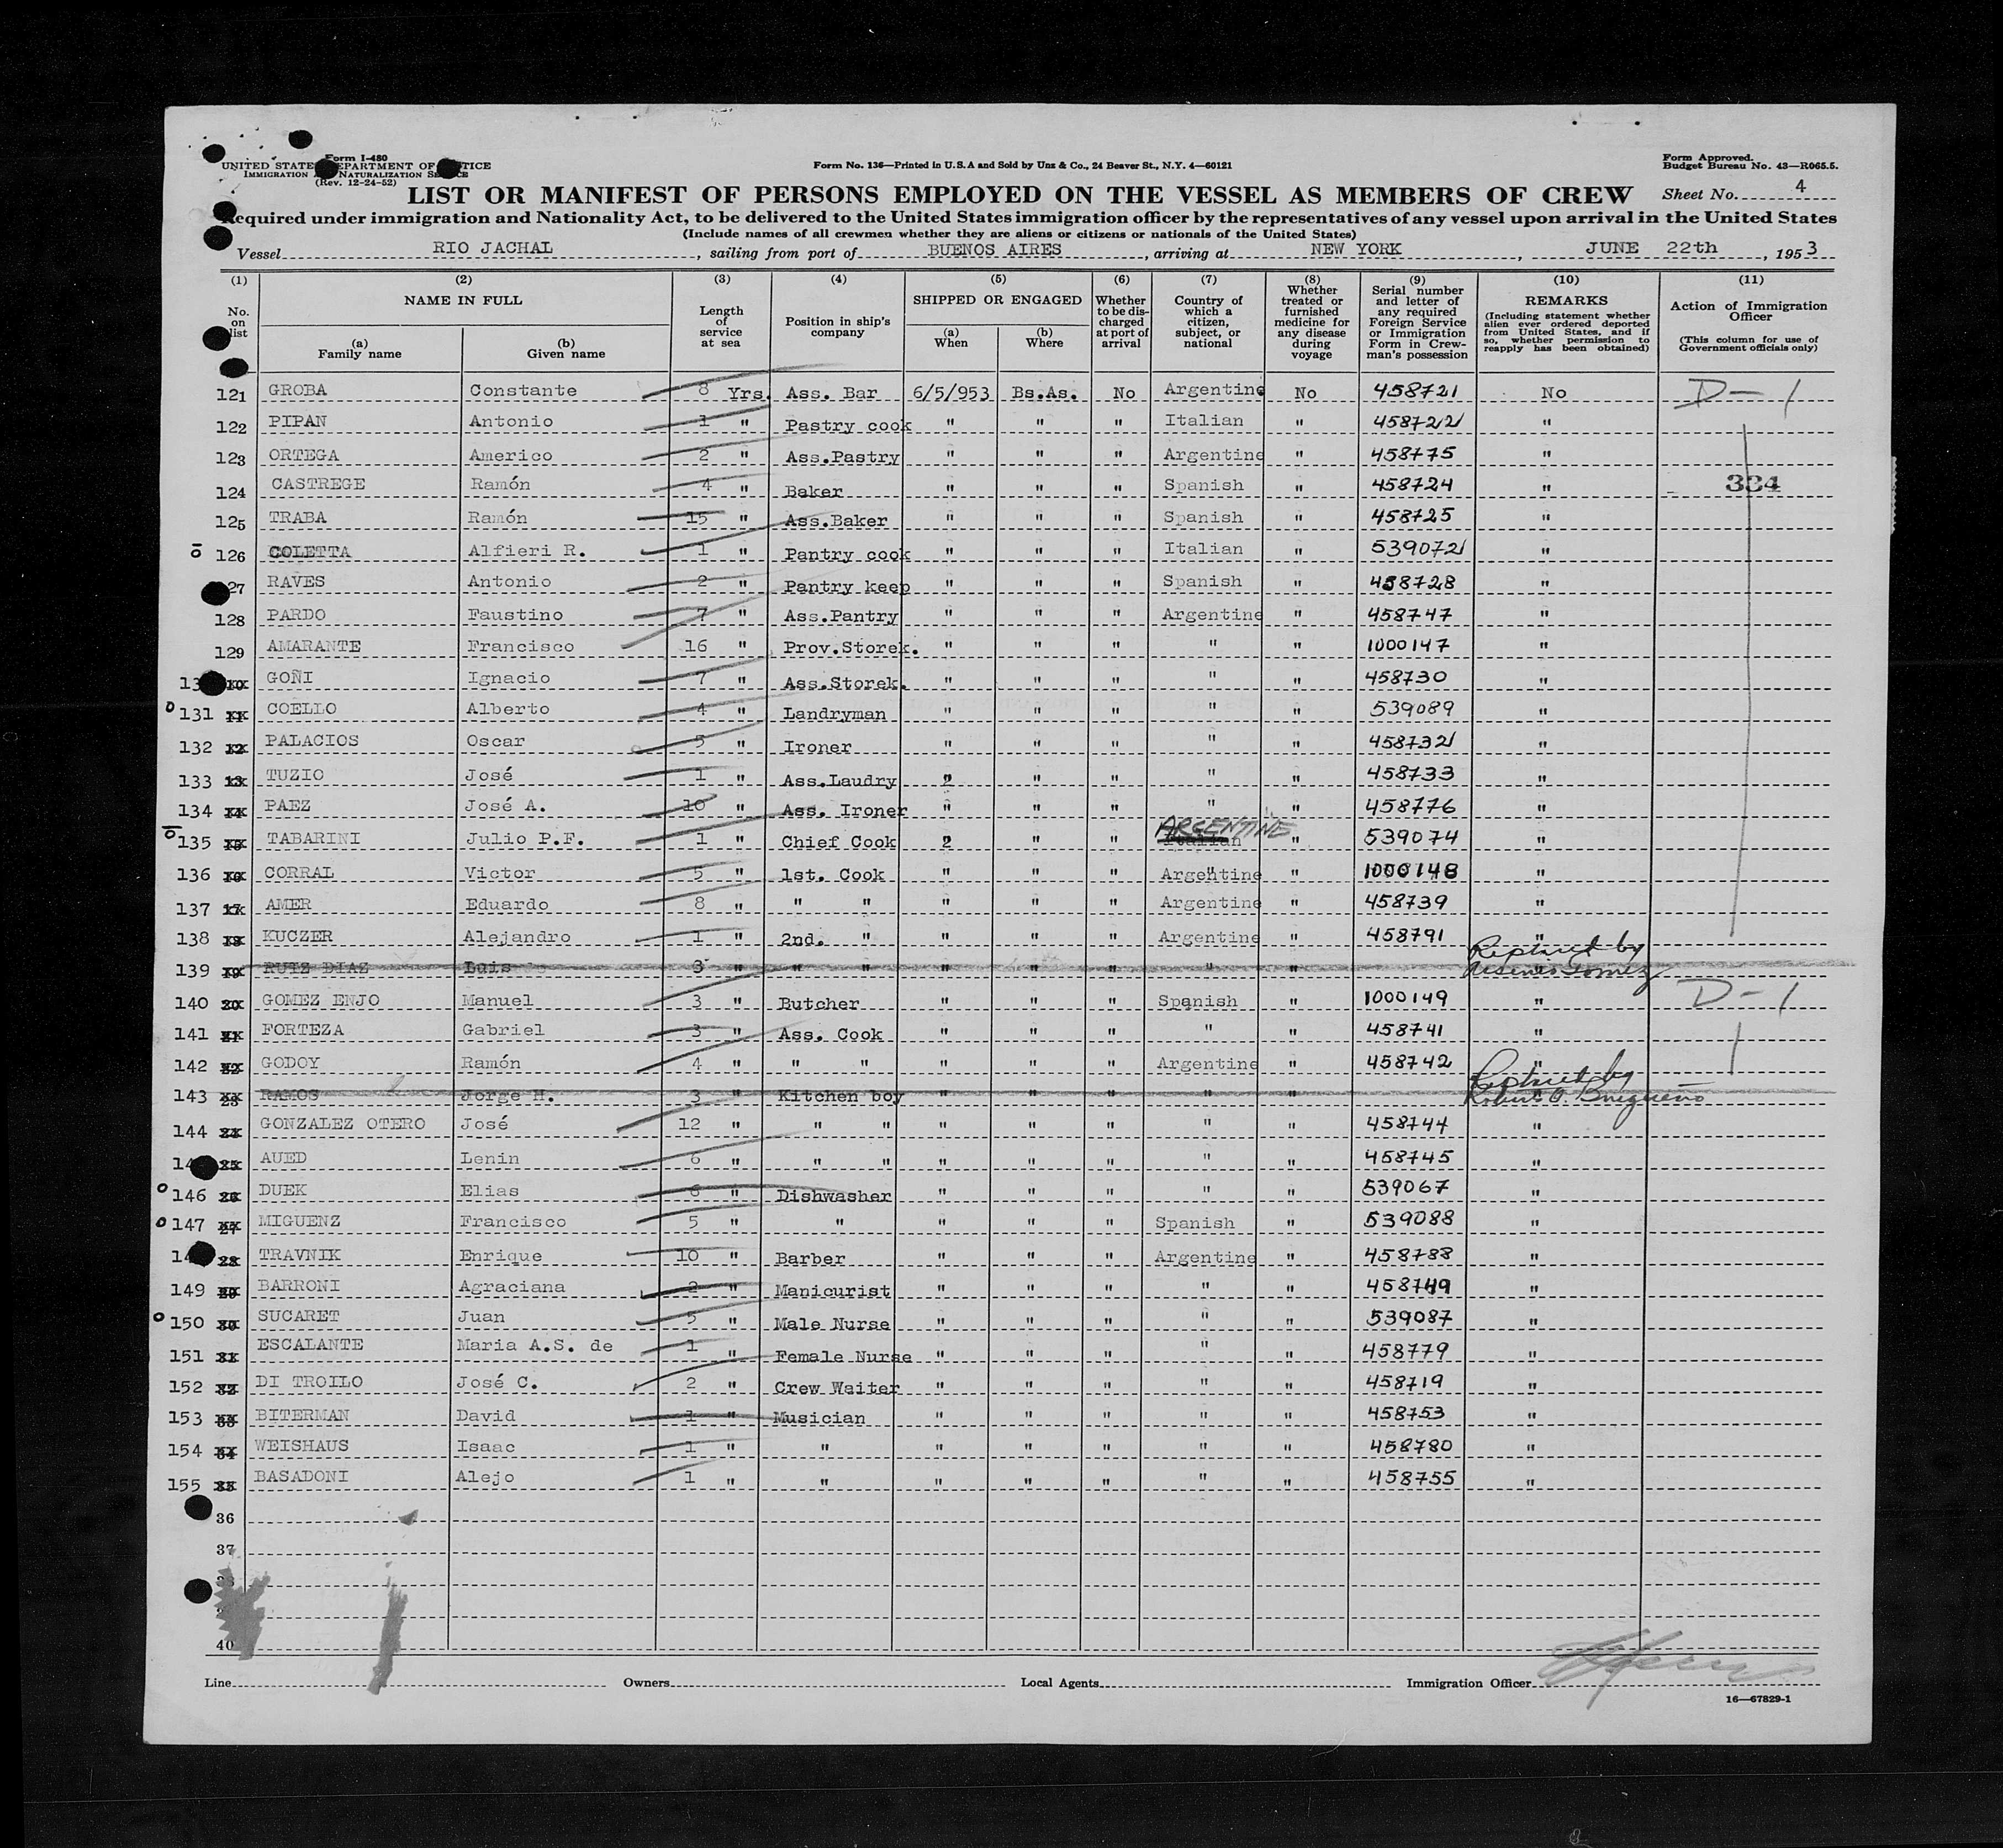 Form I-480
UNITED STATES DEPARTMENT OF JUSTICE
IMMIGRATION AND NATURALIZATION SERVICE
(Rev. 12-24-52)
Form No. 136—Printed in U.S.A and Sold by Unz & Co., 24 Beaver St., N.Y. 4—60121
Form Approved.
Budget Bureau No. 43—R065.5.
LIST OR MANIFEST OF PERSONS EMPLOYED ON THE VESSEL AS MEMBERS OF CREW
Sheet No. 4
Required under immigration and Nationality Act, to be delivered to the United States immigration officer by the representatives of any vessel upon arrival in the United States
(Include names of all crewmen whether they are aliens or citizens or nationals of the United States)
Vessel RIO JACHAL, sailing from port of BUENOS AIRES, arriving at NEW YORK, JUNE 22th, 1953
(1) (2) (3) (4) (5) (6) (7) (8) (9) (10) (11)
No. on list
NAME IN FULL
(a) Family name
(b) Given name
Length of service at sea
Position in ship's company
SHIPPED OR ENGAGED
(a) When
(b) Where
Whether to be discharged at port of arrival
Country of which a citizen, subject, or national
Whether treated or furnished medicine for any disease during voyage
Serial number and letter of any required Foreign Service or Immigration Form in Crewman's possession
REMARKS
(Including statement whether alien ever ordered deported from United States, and if so, whether permission to reapply has been obtained)
Action of Immigration Officer
(This column for use of Government officials only)
121 GROBA Constante 8 Yrs. Ass. Bar 6/5/953 Bs.As. No Argentine No 458721 No D-1
122 PIPAN Antonio 1 " Pastry cook " " " Italian " 458722 "
123 ORTEGA Americo 2 " Ass.Pastry " " " Argentine " 458775 "
124 CASTREGE Ramón 4 " Baker " " " Spanish " 458724 " 334
125 TRABA Ramón 15 " Ass.Baker " " " Spanish " 458725 "
126 COLETTA Alfieri R. 1 " Pantry cook " " " Italian " 539072 "
27 RAVES Antonio 2 " Pantry keep " " " Spanish " 458728 "
128 PARDO Faustino 7 " Ass.Pantry " " " Argentine " 458747 "
129 AMARANTE Francisco 16 " Prov.Storek. " " " " " 1000147 "
13 GOÑI Ignacio 7 " Ass.Storek. " " " " " 458730 "
131 COELLO Alberto 4 " Landryman " " " " " 539089 "
132 PALACIOS Oscar 5 " Ironer " " " " " 458732 "
133 TUZIO José 1 " Ass.Laudry 2 " " " " 458733 "
134 PAEZ José A. 10 " Ass. Ironer " " " " " 458776 "
135 TABARINI Julio P.F. 1 " Chief Cook 2 " " ARGENTINE Italian " 539074 "
136 CORRAL Victor 5 " 1st. Cook " " " Argentine " 1000148 "
137 AMER Eduardo 8 " " " " " " Argentine " 458739 "
138 KUCZER Alejandro 1 " 2nd. " " " " Argentine " 458791 "
139 RUIZ DIAZ Luis 3 " " " " " " " " Replaced by Gomez
140 GOMEZ ENJO Manuel 3 " Butcher " " " Spanish " 1000149 " D-1
141 FORTEZA Gabriel 3 " Ass. Cook " " " " " 458741 "
142 GODOY Ramón 4 " " " " " " Argentine " 458742 "
143 RAMOS Jorge H. 3 " Kitchen boy " " " " " Replaced by
144 GONZALEZ OTERO José 12 " " " " " " " " 458744 "
14 AUED Lenin 6 " " " " " " " " 458745 "
146 DUEK Elias 6 " Dishwasher " " " " " 539067 "
147 MIGUENZ Francisco 5 " " " " " Spanish " 539088 "
14 TRAVNIK Enrique 10 " Barber " " " Argentine " 458788 "
149 BARRONI Agraciana 2 " Manicurist " " " " " 458749 "
150 SUCARET Juan 5 " Male Nurse " " " " " 539087 "
151 ESCALANTE Maria A.S. de 1 " Female Nurse " " " " " 458779 "
152 DI TROILO José C. 2 " Crew Waiter " " " " " 458719 "
153 BITERMAN David 1 " Musician " " " " " 458753 "
154 WEISHAUS Isaac 1 " " " " " " " 458780 "
155 BASADONI Alejo 1 " " " " " " " 458755 "
36
37
40
Line Owners Local Agents Immigration Officer
16—67829-1